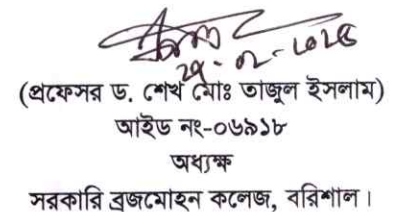 (প্রফেসর ড. শেখ মোঃ তাজুল ইসলাম)
আইড নং-০৬৯১৮
অধ্যক্ষ
সরকারি ব্রজমোহন কলেজ, বরিশাল।